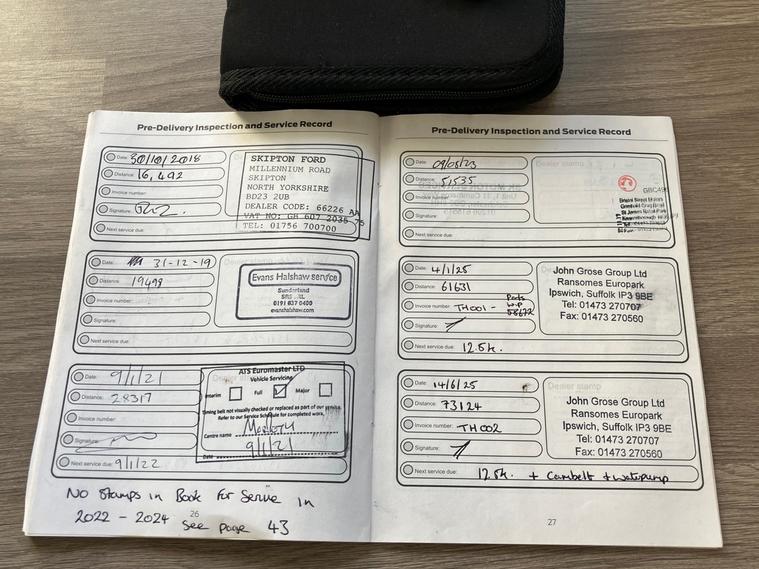 Pre-Delivery Inspection and Service Record
Date: 30/10/2018
Distance: 16,492
Invoice number:
Signature:
Next service due:
SKIPTON FORD
MILLENNIUM ROAD
SKIPTON
NORTH YORKSHIRE
BD23 2UB
DEALER CODE: 66226 AA
VAT NO: GB 607 2036 75
TEL: 01756 700700
Date: 31-12-19
Distance: 19498
Invoice number:
Signature:
Next service due:
Evans Halshaw service
Sunderland
0191 837 0400
evanshalshaw.com
Date: 9/1/21
Distance: 28317
Invoice number:
Signature:
Next service due: 9/1/22
ATS Euromaster LTD
Vehicle Servicing
Interim Full Major
Timing belt not visually checked or replaced as part of our service
Refer to our Service Schedule for completed work.
Centre name
Date 9/1/21
No Stamps in Book For Service in
2022 - 2024 See page 43
26
Pre-Delivery Inspection and Service Record
Date: 09/05/23
Distance: 51535
Invoice number:
Signature:
Next service due:
Dealer stamp
Date: 4/1/25
Distance: 61631
Invoice number: TH001 - Parts
Signature:
Next service due: 12.5k.
John Grose Group Ltd
Ransomes Europark
Ipswich, Suffolk IP3 9BE
Tel: 01473 270707
Fax: 01473 270560
Date: 14/6/25
Distance: 73124
Invoice number: TH002
Signature:
Next service due: 12.5k. + Cambelt + waterpump
Dealer stamp
John Grose Group Ltd
Ransomes Europark
Ipswich, Suffolk IP3 9BE
Tel: 01473 270707
Fax: 01473 270560
27